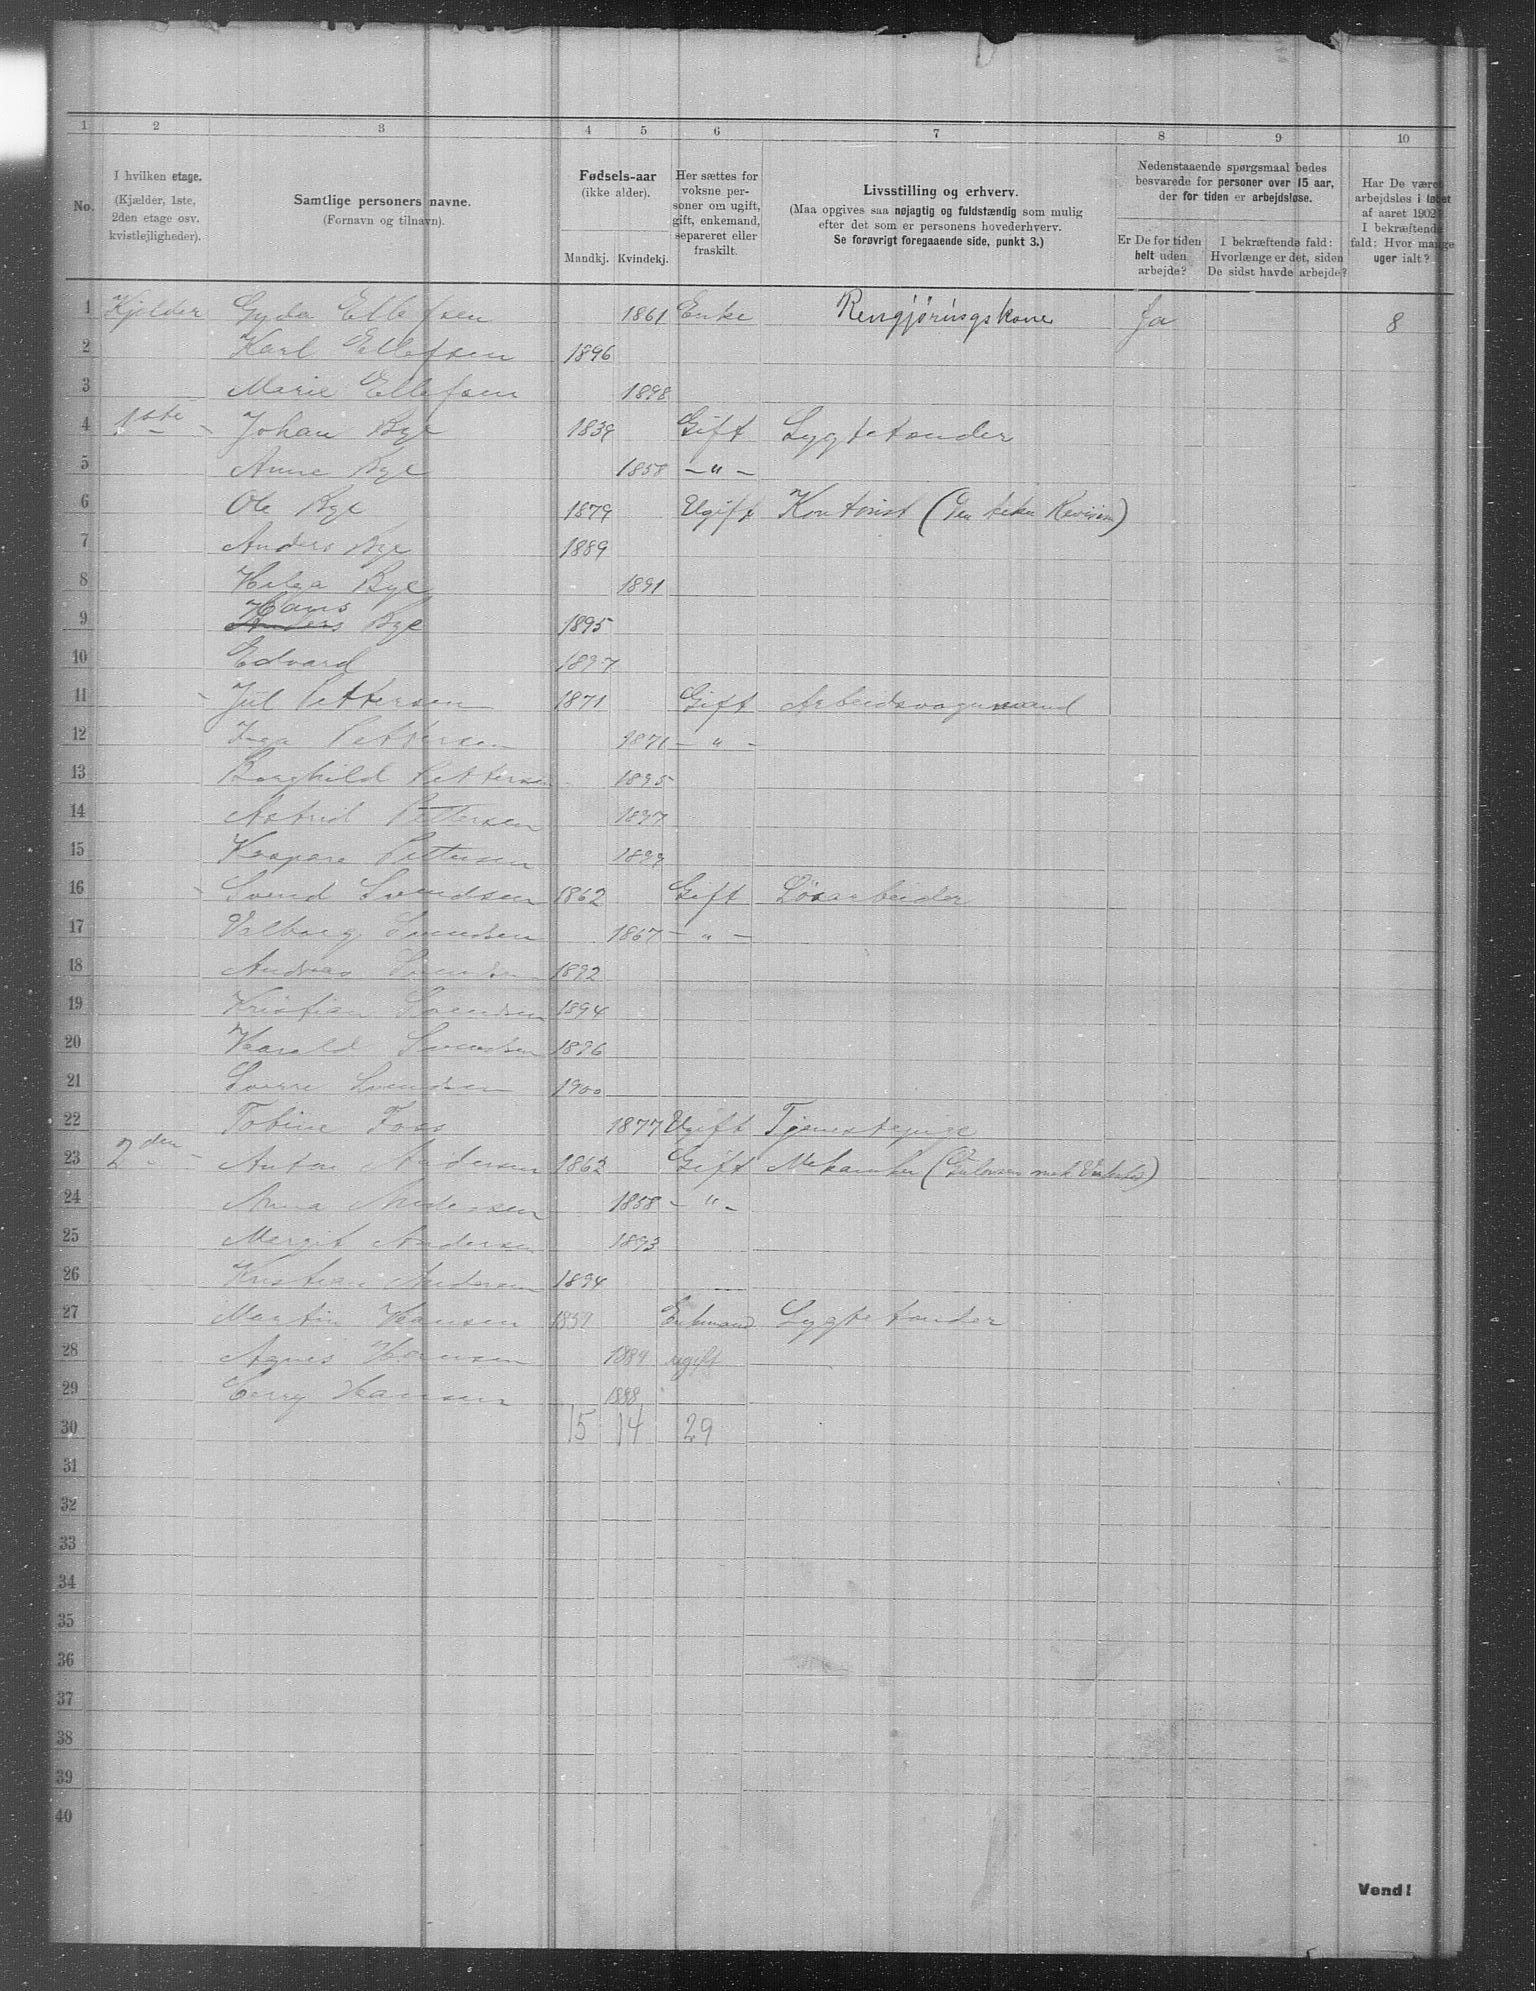 1 2 3 4 5 6 7 8 9 10
No.
I hvilken etage.
(Kjælder, 1ste,
2den etage osv.
kvistlejligheder).
Samtlige personers navne.
(Fornavn og tilnavn).
Fødsels-aar
(ikke alder).
Mandkj. Kvindekj.
Her sættes for
voksne per-
soner om ugift,
gift, enkemand,
separeret eller
fraskilt.
Livsstilling og erhverv.
(Maa opgives saa nøjagtig og fuldstændig som mulig
efter det som er personens hovederhverv.
Se forøvrigt foregaaende side, punkt 3.)
Nedenstaaende spørgsmaal bedes
besvarede for personer over 15 aar,
der for tiden er arbejdsløse.
Er De for tiden
helt uden
arbejde?
I bekræftende fald:
Hvorlænge er det, siden
De sidst havde arbejde?
Har De været
arbejdsløs i løbet
af aaret 1902?
I bekræftende
fald: Hvor mange
uger ialt?
1 Kjelder Gyda Ellefsen 1861 Enke Rengjøringskone Ja 8
2 Karl Ellefsen 1896
3 Marie Ellefsen 1898
4 1ste Johan Bye 1839 Gift Lygtetænder
5 Anne Bye 1858 — " —
6 Ole Bye 1879 Ugift Kontorist (Den Revision)
7 Anders Bye 1889
8 Helga Bye 1891
9 Hans Anders Bye 1895
10 Edvard 1897
11 Jul Pettersen 1871 Gift Arbeidsvognmand
12 Inga Pettersen 1871 — " —
13 Borghild Pettersen 1895
14 Astrid Pettersen 1897
15 Kaspara Pettersen 1899
16 Svend Svendsen 1862 Gift Løsarbeider
17 Valborg Svendsen 1867 — " —
18 Andreas Svendsen 1892
19 Kristian Svendsen 1894
20 Harald Svendsen 1896
21 Sverre Svendsen 1900
22 Tobine Foss 1877 Ugift Tjenestepige
23 2den Anton Andersen 1862 Gift Mekaniker (Gulovsen mek
24 Anna Andersen 1858 — " —
25 Margit Andersen 1893
26 Kristian Andersen 1894
27 Martin Hansen 1857 Enkmand Lygtetænder
28 Agnes Hansen 1884 ugift
29 Hansen 1888
30 15 14 29
31
32
33
34
35
36
37
38
39
40
Vend!